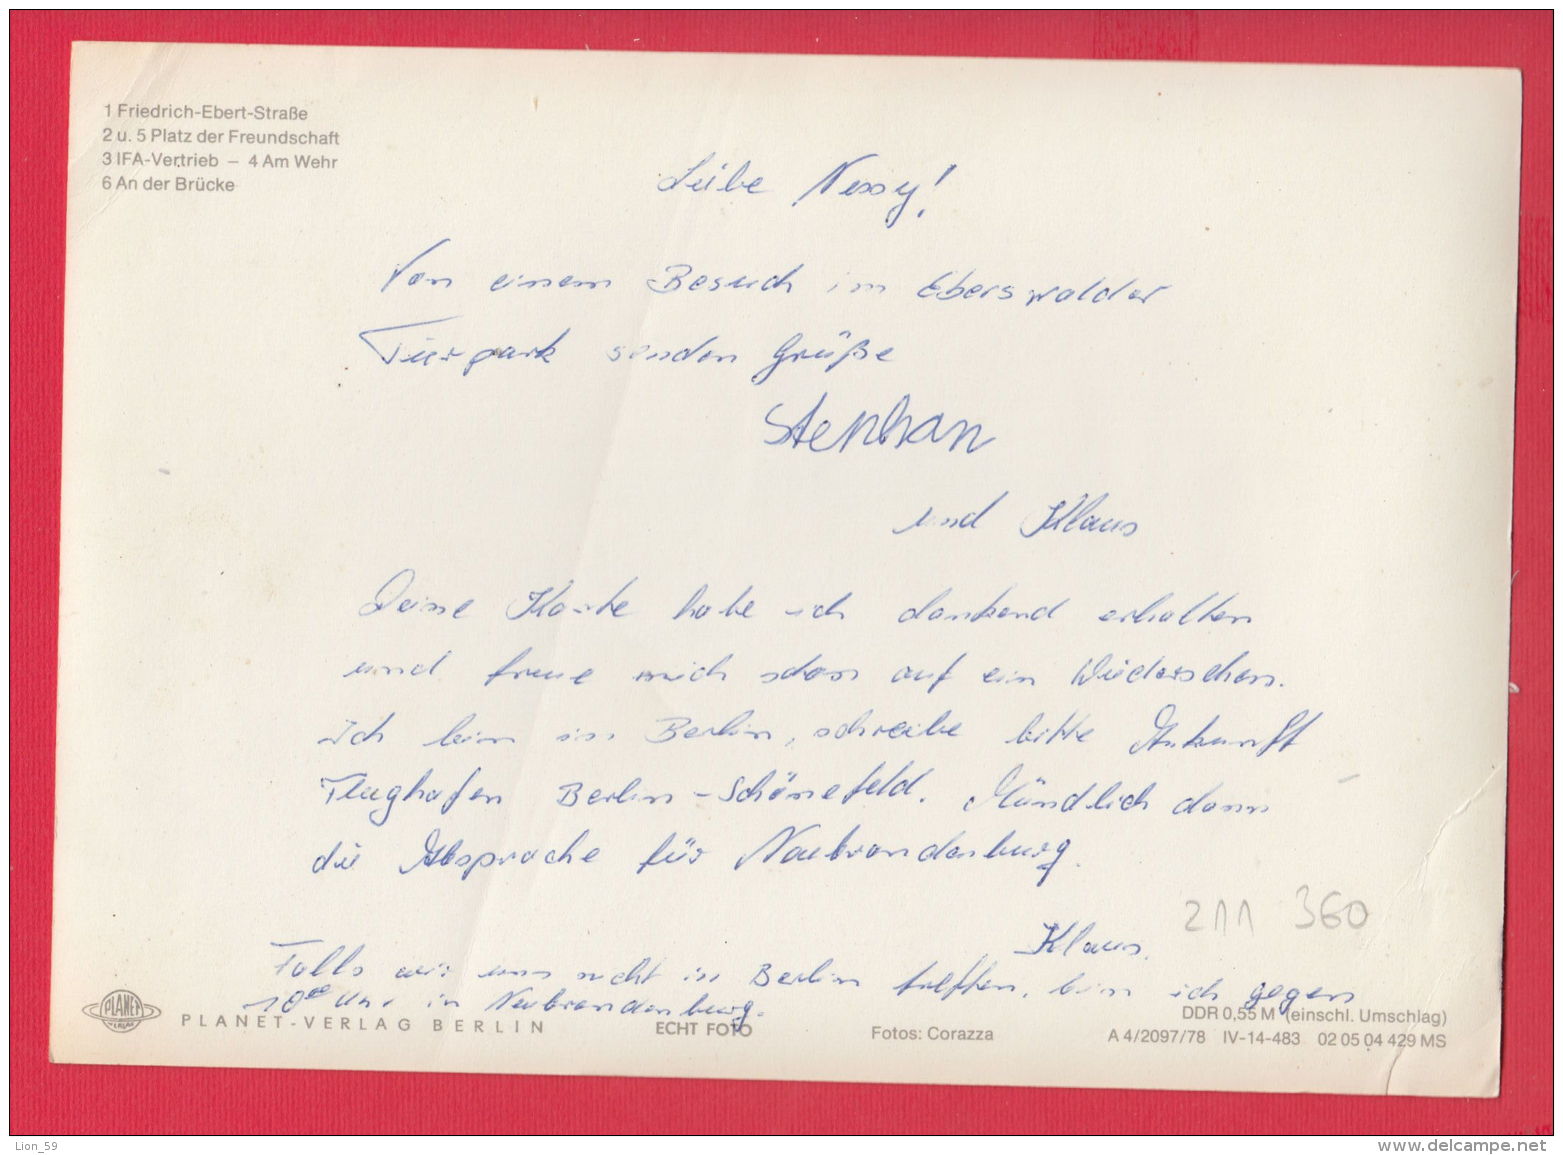 1 Friedrich-Ebert-Straße
2 u. 5 Platz der Freundschaft
3 IFA-Vertrieb – 4 Am Wehr
6 An der Brücke
Leibe Nessy!
Von einem Besuch im Eberswalder
Tierpark senden Grüße
Stephan
und Klaus
Deine Karte habe ich dankend erhalten
und freue mich schon auf ein Wiedersehen.
Ich bin in Berlin, schreibe bitte Ankunft
Flughafen Berlin-Schönefeld. Mündlich dann
die Absprache für Neubrandenburg.
Klaus.
211 360
Falls wir uns nicht in Berlin treffen, bin ich gegen
10⁰⁰ Uhr in Neubrandenburg.
PLANET VERLAG
PLANET-VERLAG BERLIN
ECHT FOTO
Fotos: Corazza
DDR 0,55 M (einschl. Umschlag)
A 4/2097/78 IV-14-483 02 05 04 429 MS
Lion_59
www.delcampe.net